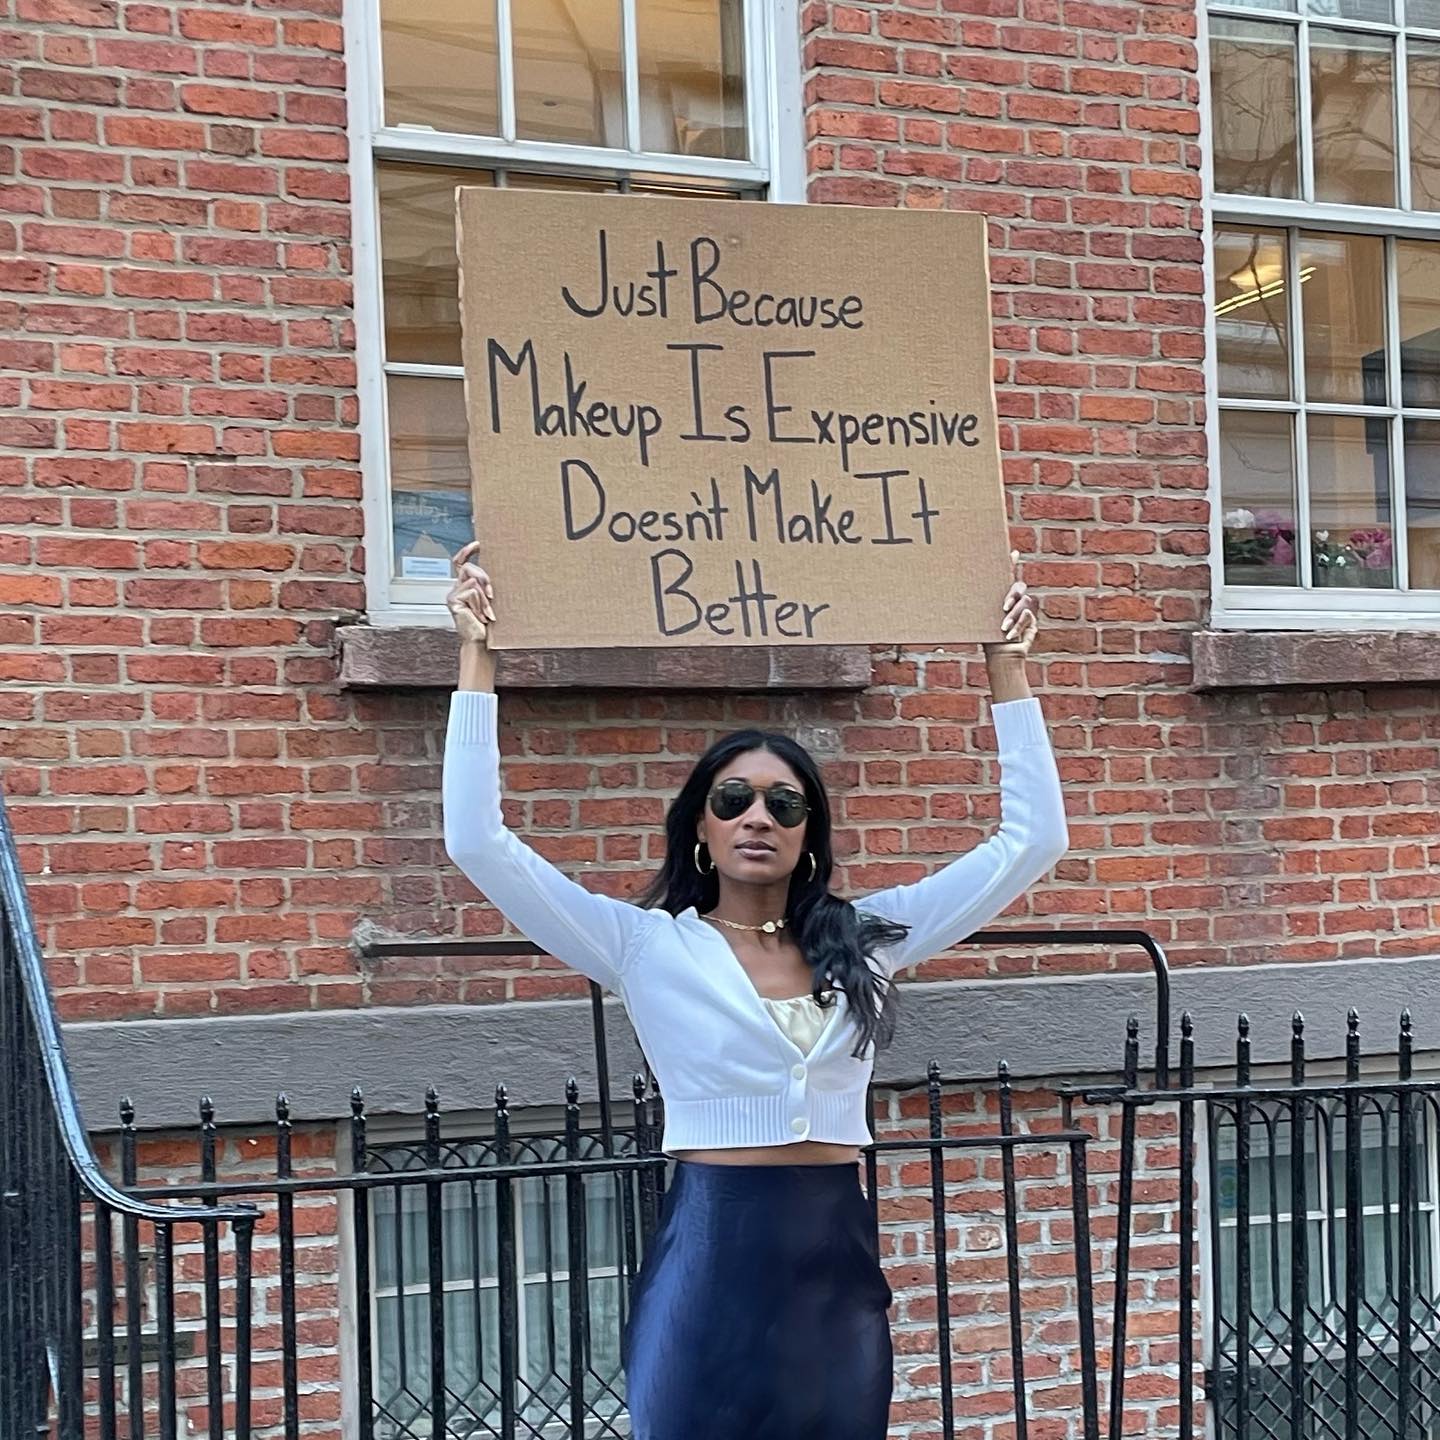 Just Because
Makeup Is Expensive
Doesn't Make It
Better